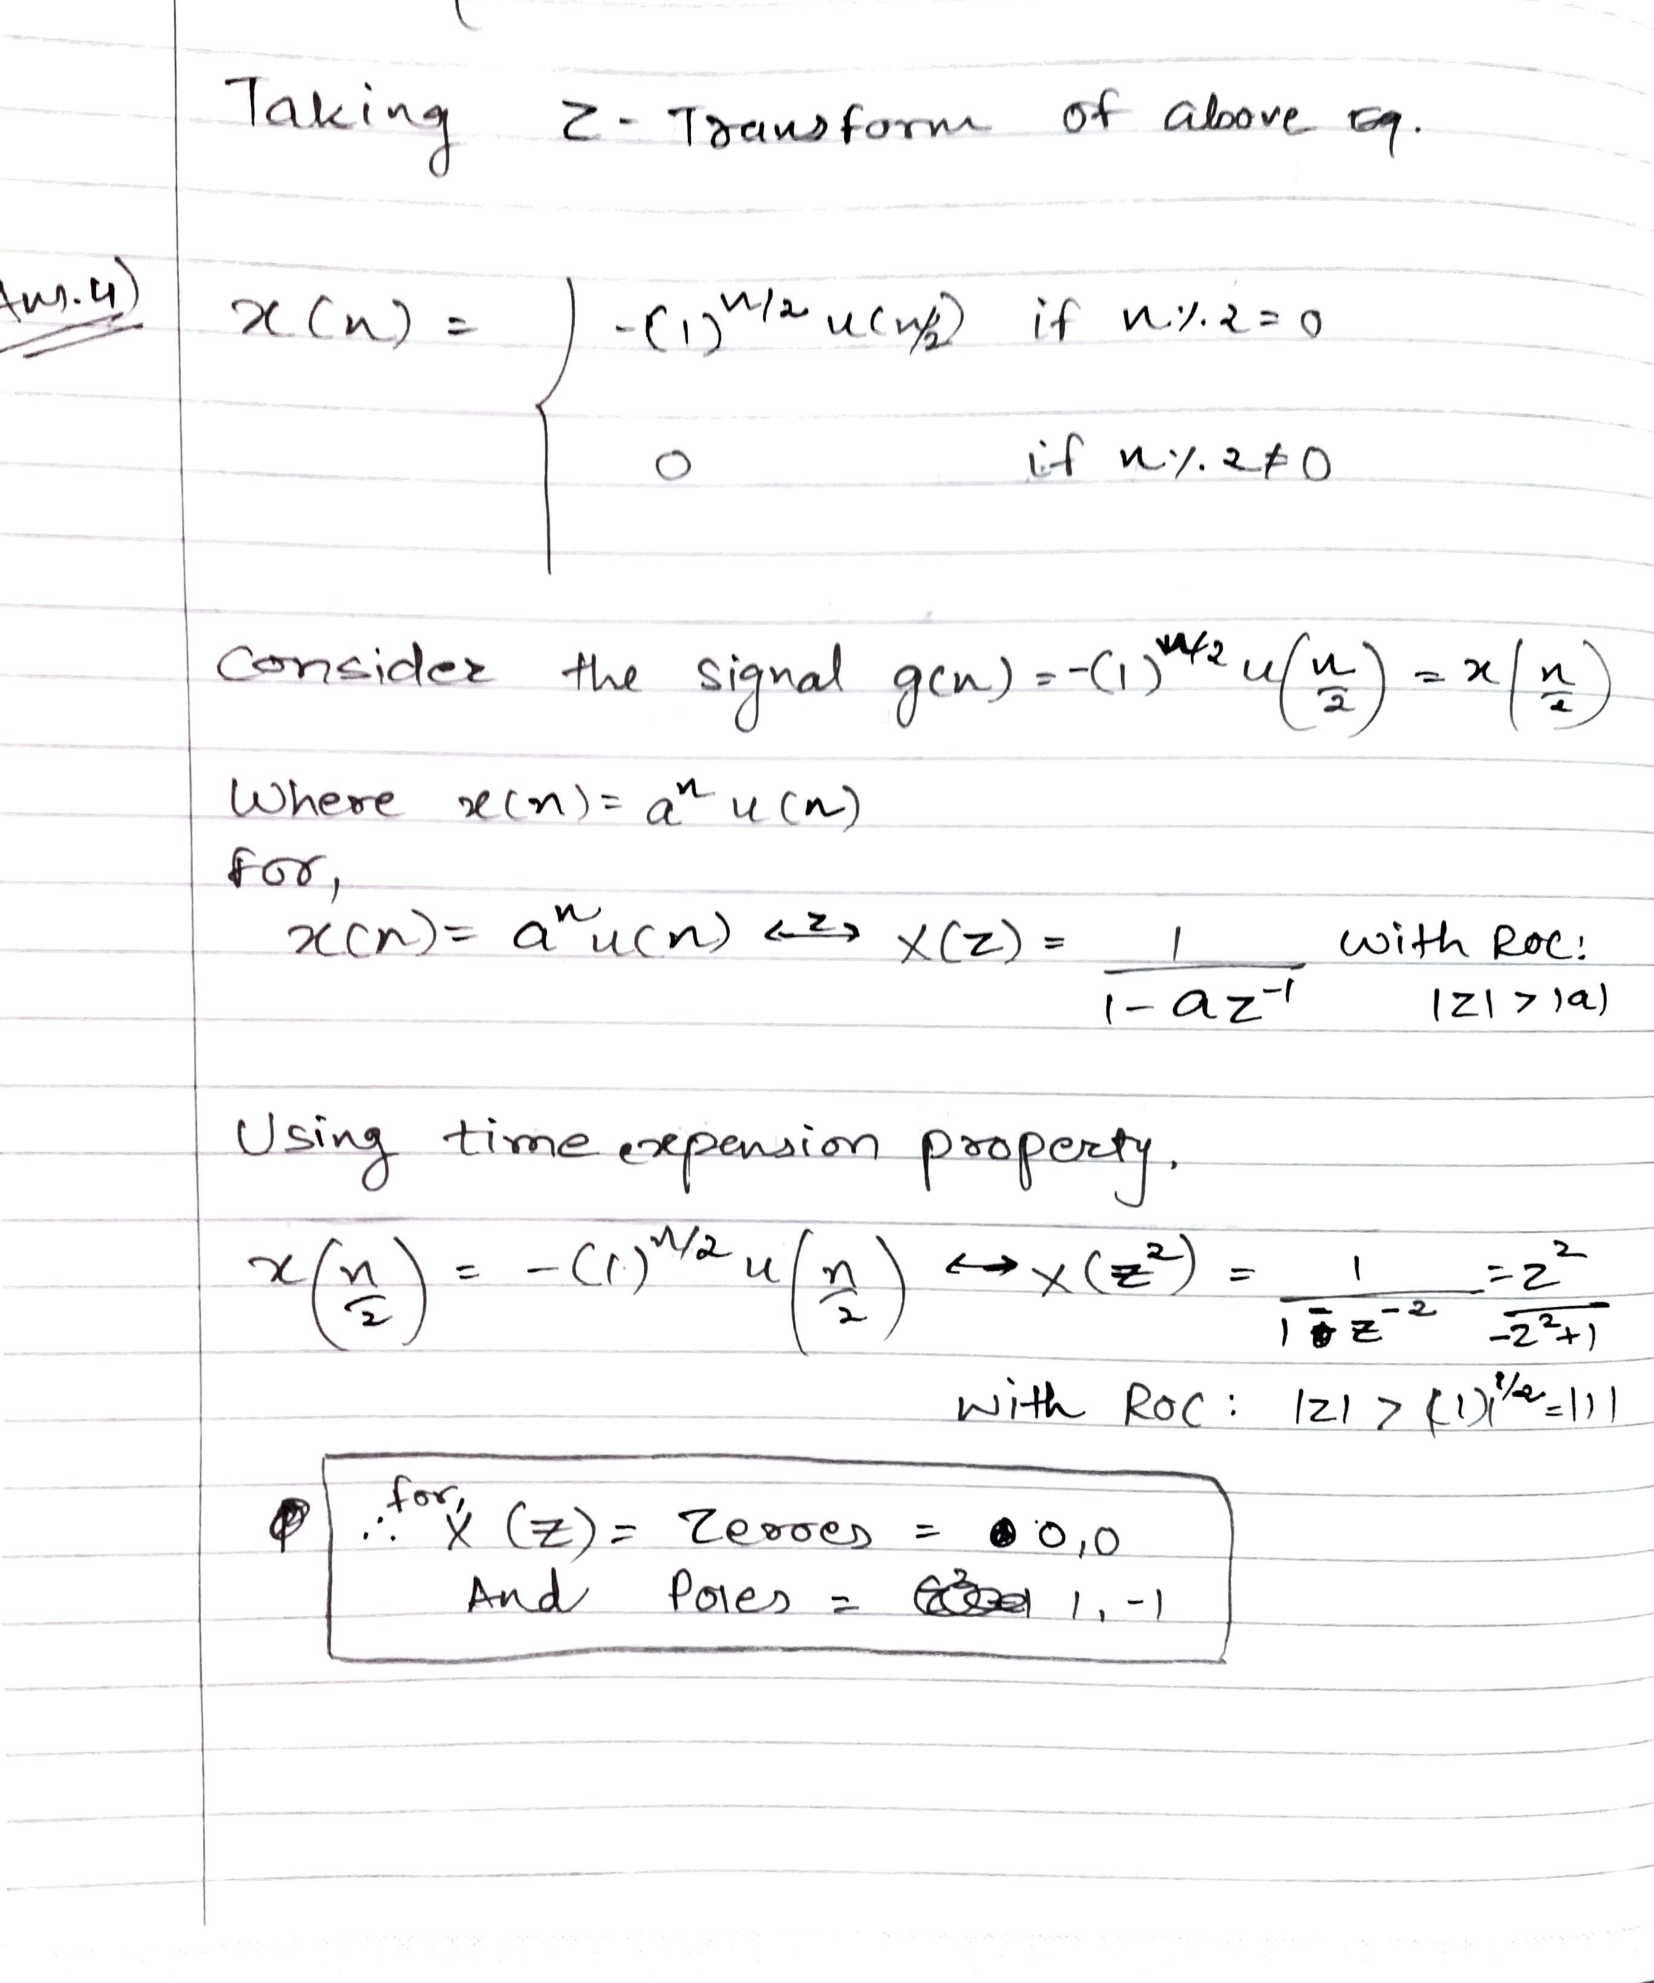 Taking Z-Transform of above Eq.
Ans.4) x(n) = { -(1)^{n/2} u(n/2) if n%2=0
0 if n%2≠0
Consider the signal g(n) = -(1)^{n/2} u(n/2) = x(n/2)
Where x(n) = a^n u(n)
for,
x(n) = a^n u(n) <-z-> X(Z) = 1/(1-az^{-1}) with ROC:
|z| > |a|
Using time expension property.
x(n/2) = -(1)^{n/2} u(n/2) ↔ X(z^2) = 1/(1-z^{-2}) = z^2/(-z^2+1)
with ROC: |z| > |(1)|^{1/2} = |1|
∴ for, X(Z) = Zeroes = 0,0
And Poles = 1,-1